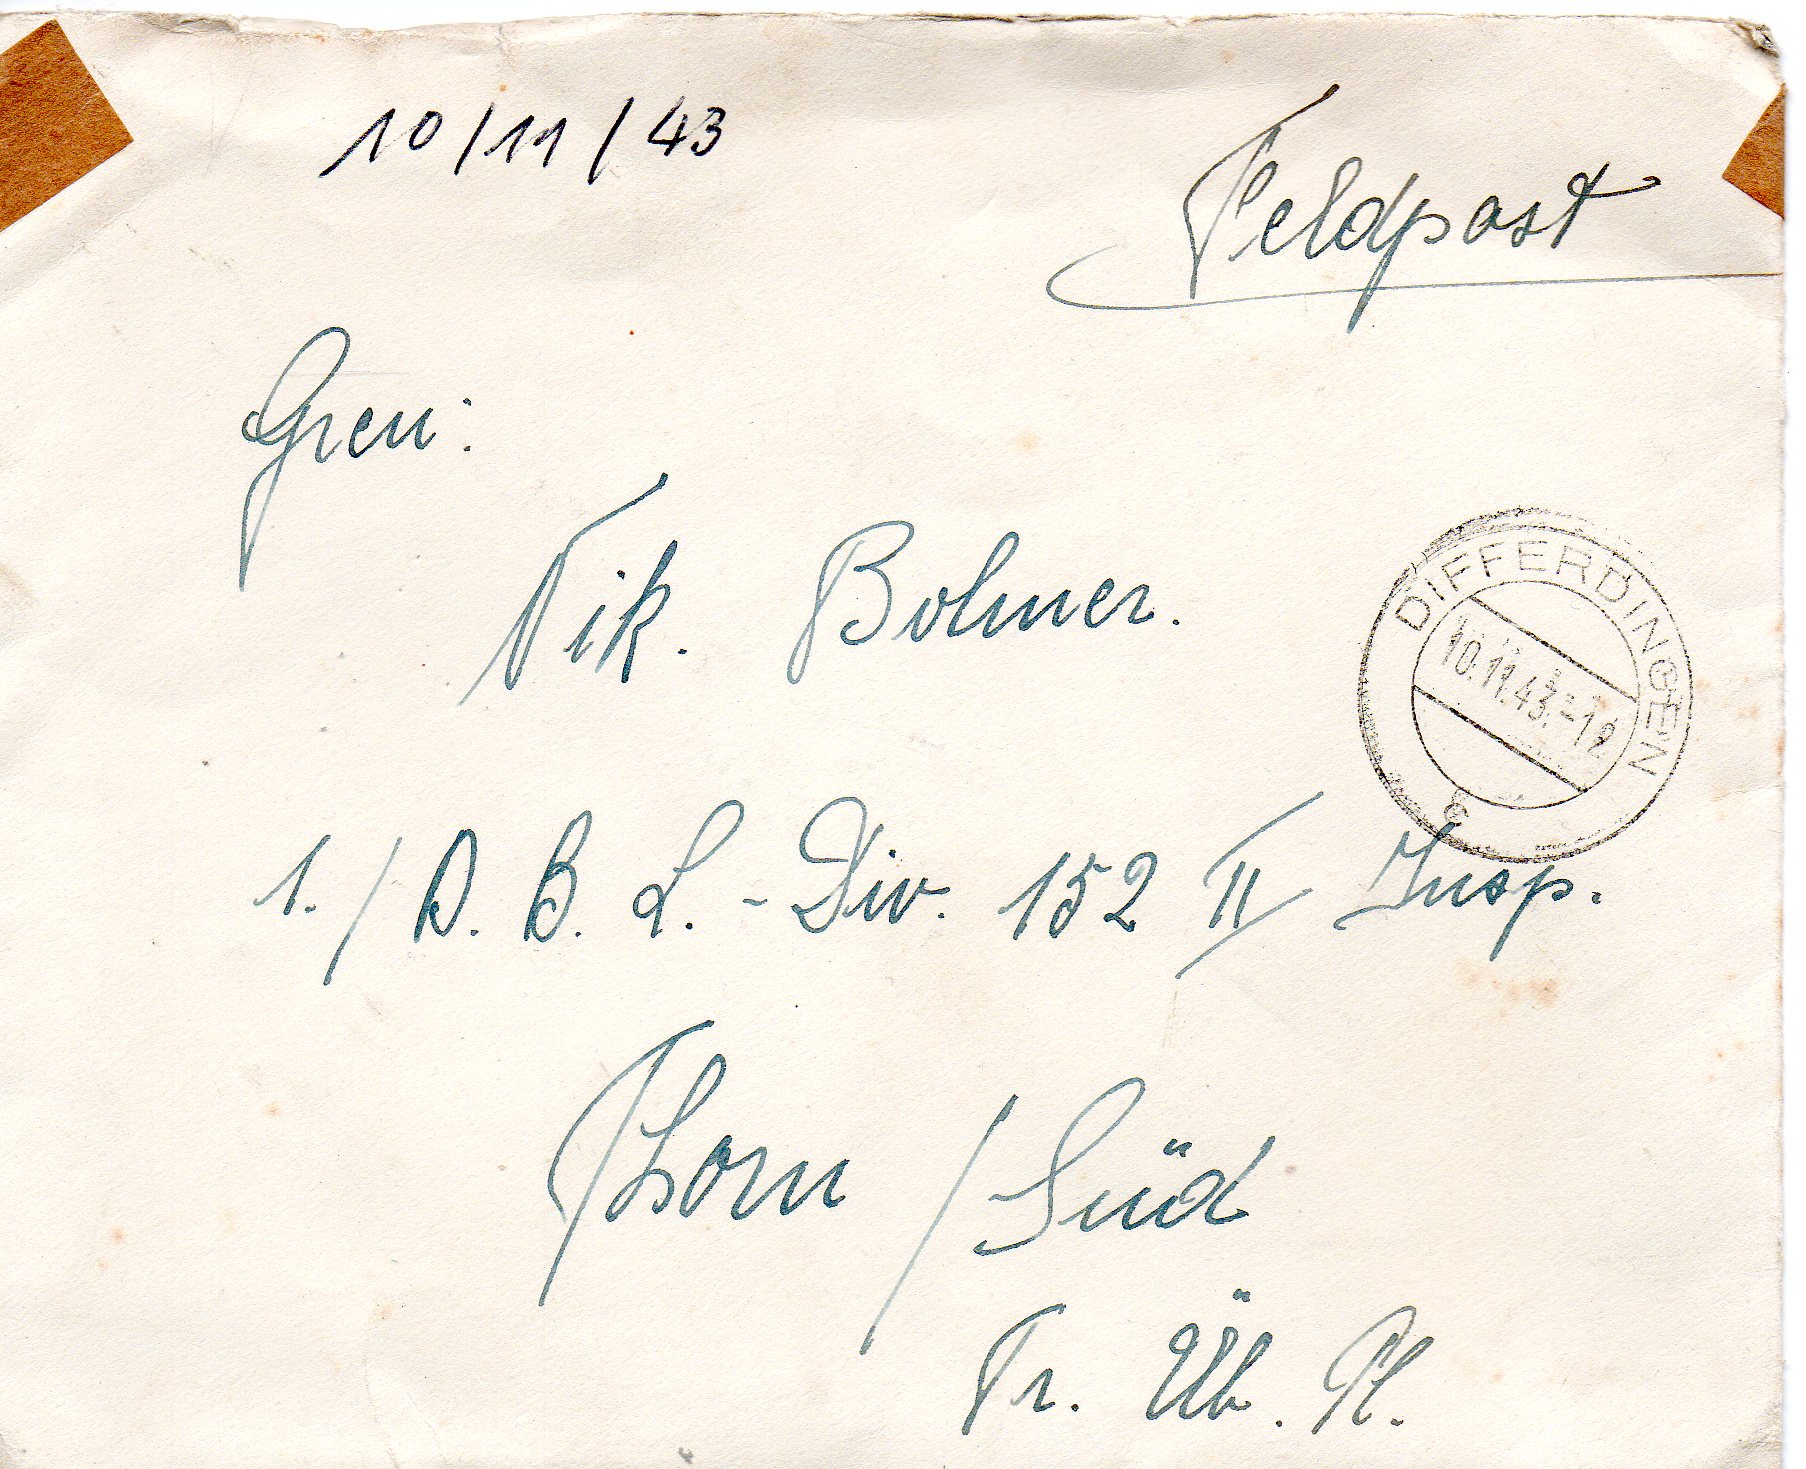 10/11/43
Feldpost
Gren:
Nik. Bolmer.
DIFFERDINGEN
10.11.43.-12
1./D. B. L.-Div. 152 II Insp.
Thorn /Süd
Tr. Üb. Pl.